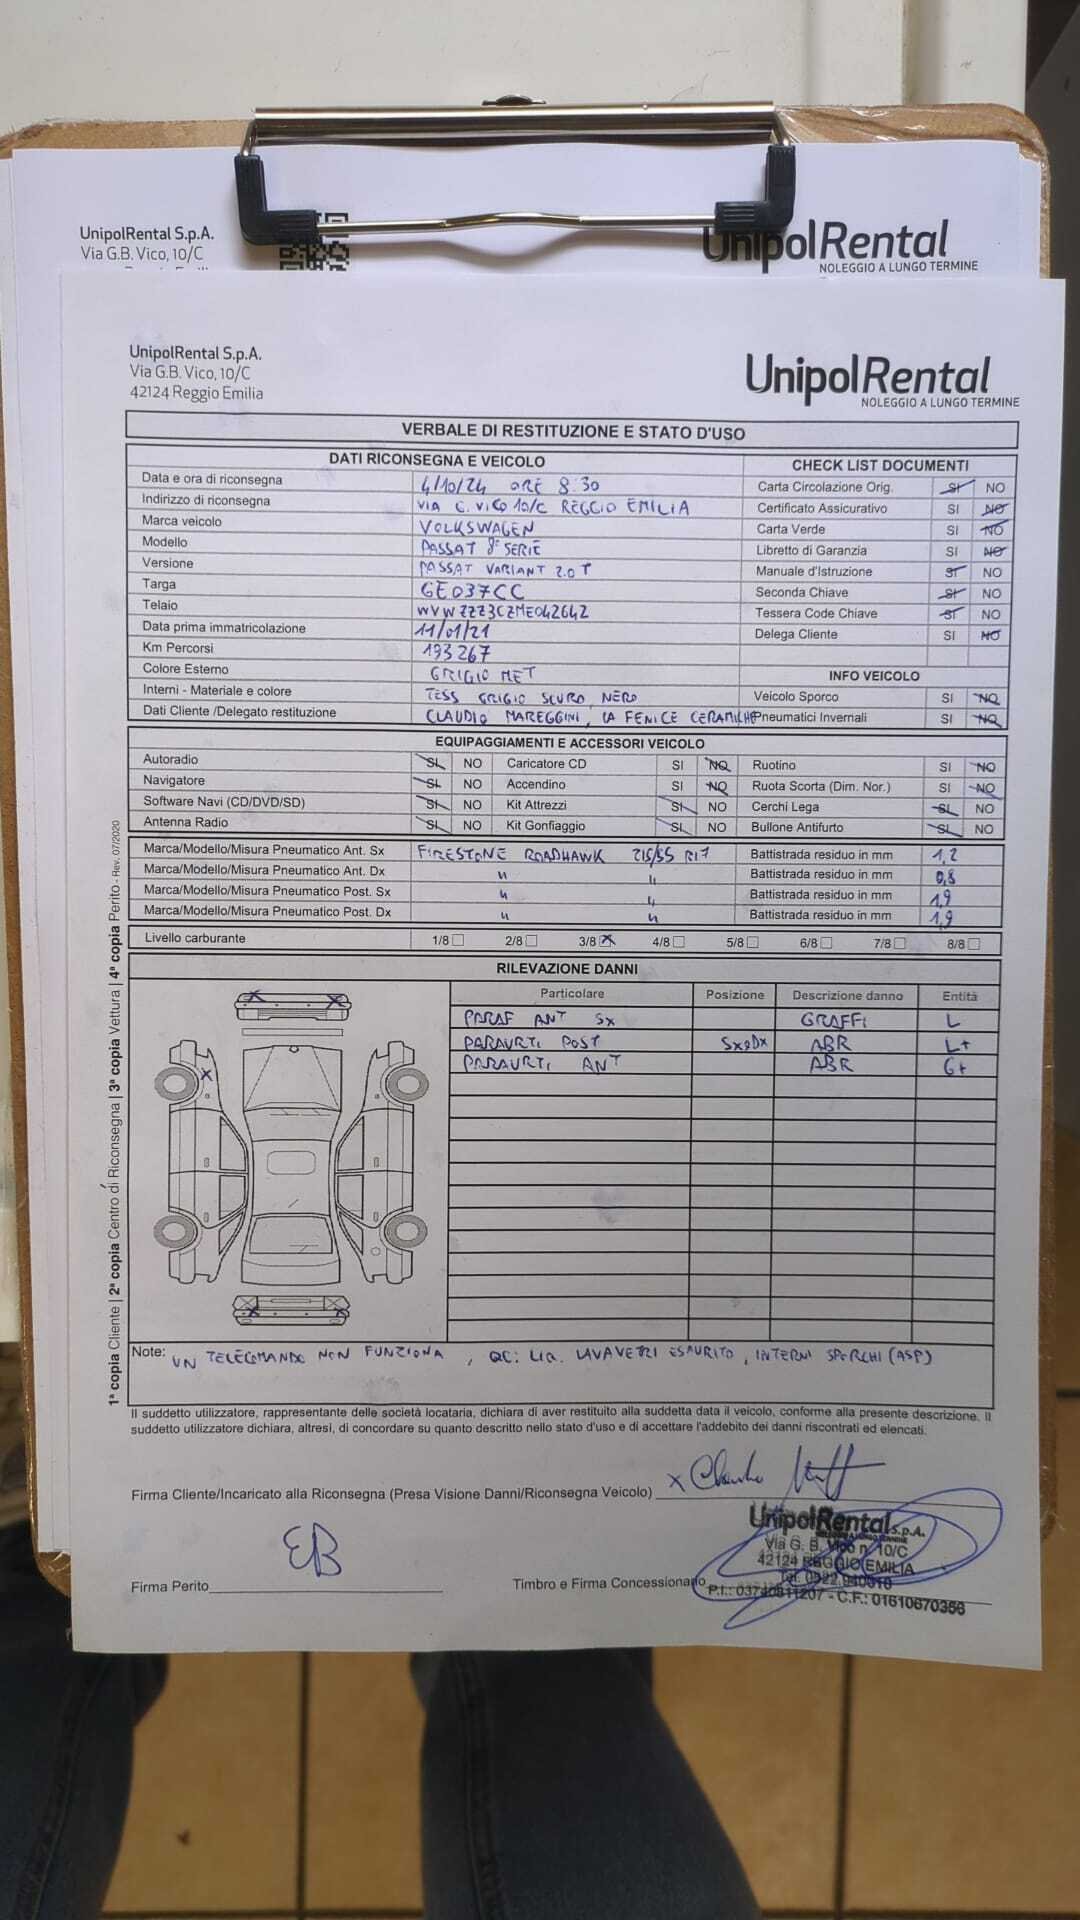 UnipolRental S.p.A.
Via G.B. Vico, 10/C
UnipolRental
NOLEGGIO A LUNGO TERMINE
UnipolRental S.p.A.
Via G.B. Vico, 10/C
42124 Reggio Emilia
UnipolRental
NOLEGGIO A LUNGO TERMINE
VERBALE DI RESTITUZIONE E STATO D'USO
DATI RICONSEGNA E VEICOLO CHECK LIST DOCUMENTI
Data e ora di riconsegna 4/10/24 ORE 8:30 Carta Circolazione Orig. SI NO
Indirizzo di riconsegna VIA G. VICO 10/C REGGIO EMILIA Certificato Assicurativo SI NO
Marca veicolo VOLKSWAGEN Carta Verde SI NO
Modello PASSAT 8° SERIE Libretto di Garanzia SI NO
Versione PASSAT VARIANT 2.0 T Manuale d'Istruzione SI NO
Targa GE037CC Seconda Chiave SI NO
Telaio WVWZZZ3CZME042642 Tessera Code Chiave SI NO
Data prima immatricolazione 11/01/21 Delega Cliente SI NO
Km Percorsi 193267
Colore Esterno GRIGIO MET INFO VEICOLO
Interni - Materiale e colore TESS GRIGIO SCURO, NERO Veicolo Sporco SI NO
Dati Cliente /Delegato restituzione CLAUDIO MAREGGINI, LA FENICE CERAMICHE Pneumatici Invernali SI NO
EQUIPAGGIAMENTI E ACCESSORI VEICOLO
Autoradio SI NO Caricatore CD SI NO Ruotino SI NO
Navigatore SI NO Accendino SI NO Ruota Scorta (Dim. Nor.) SI NO
Software Navi (CD/DVD/SD) SI NO Kit Attrezzi SI NO Cerchi Lega SI NO
Antenna Radio SI NO Kit Gonfiaggio SI NO Bullone Antifurto SI NO
Marca/Modello/Misura Pneumatico Ant. Sx FIRESTONE ROADHAWK 215/55 R17 Battistrada residuo in mm 1,2
Marca/Modello/Misura Pneumatico Ant. Dx " " Battistrada residuo in mm 0,8
Marca/Modello/Misura Pneumatico Post. Sx " " Battistrada residuo in mm 1,9
Marca/Modello/Misura Pneumatico Post. Dx " " Battistrada residuo in mm 1,9
Livello carburante 1/8 2/8 3/8 X 4/8 5/8 6/8 7/8 8/8
RILEVAZIONE DANNI
Particolare Posizione Descrizione danno Entità
PARAF ANT SX GRAFFI L
PARAURTI POST SX e DX ABR L+
PARAURTI ANT ABR G+
Note: UN TELECOMANDO NON FUNZIONA, QC: LIQ. LAVAVETRI ESAURITO, INTERNI SPORCHI (ASP)
Il suddetto utilizzatore, rappresentante delle società locataria, dichiara di aver restituito alla suddetta data il veicolo, conforme alla presente descrizione. Il
suddetto utilizzatore dichiara, altresì, di concordare su quanto descritto nello stato d'uso e di accettare l'addebito dei danni riscontrati ed elencati.
Firma Cliente/Incaricato alla Riconsegna (Presa Visione Danni/Riconsegna Veicolo) x
EB
Firma Perito
Timbro e Firma Concessionario
UnipolRental S.p.A.
NOLEGGIO A LUNGO TERMINE
Via G. B. Vico n. 10/C
42124 REGGIO EMILIA
Tel. 0522 940010
P.I.: 03740811207 - C.F.: 01610670356
1ª copia Cliente | 2ª copia Centro di Riconsegna | 3ª copia Vettura | 4ª copia Perito - Rev. 07/2020